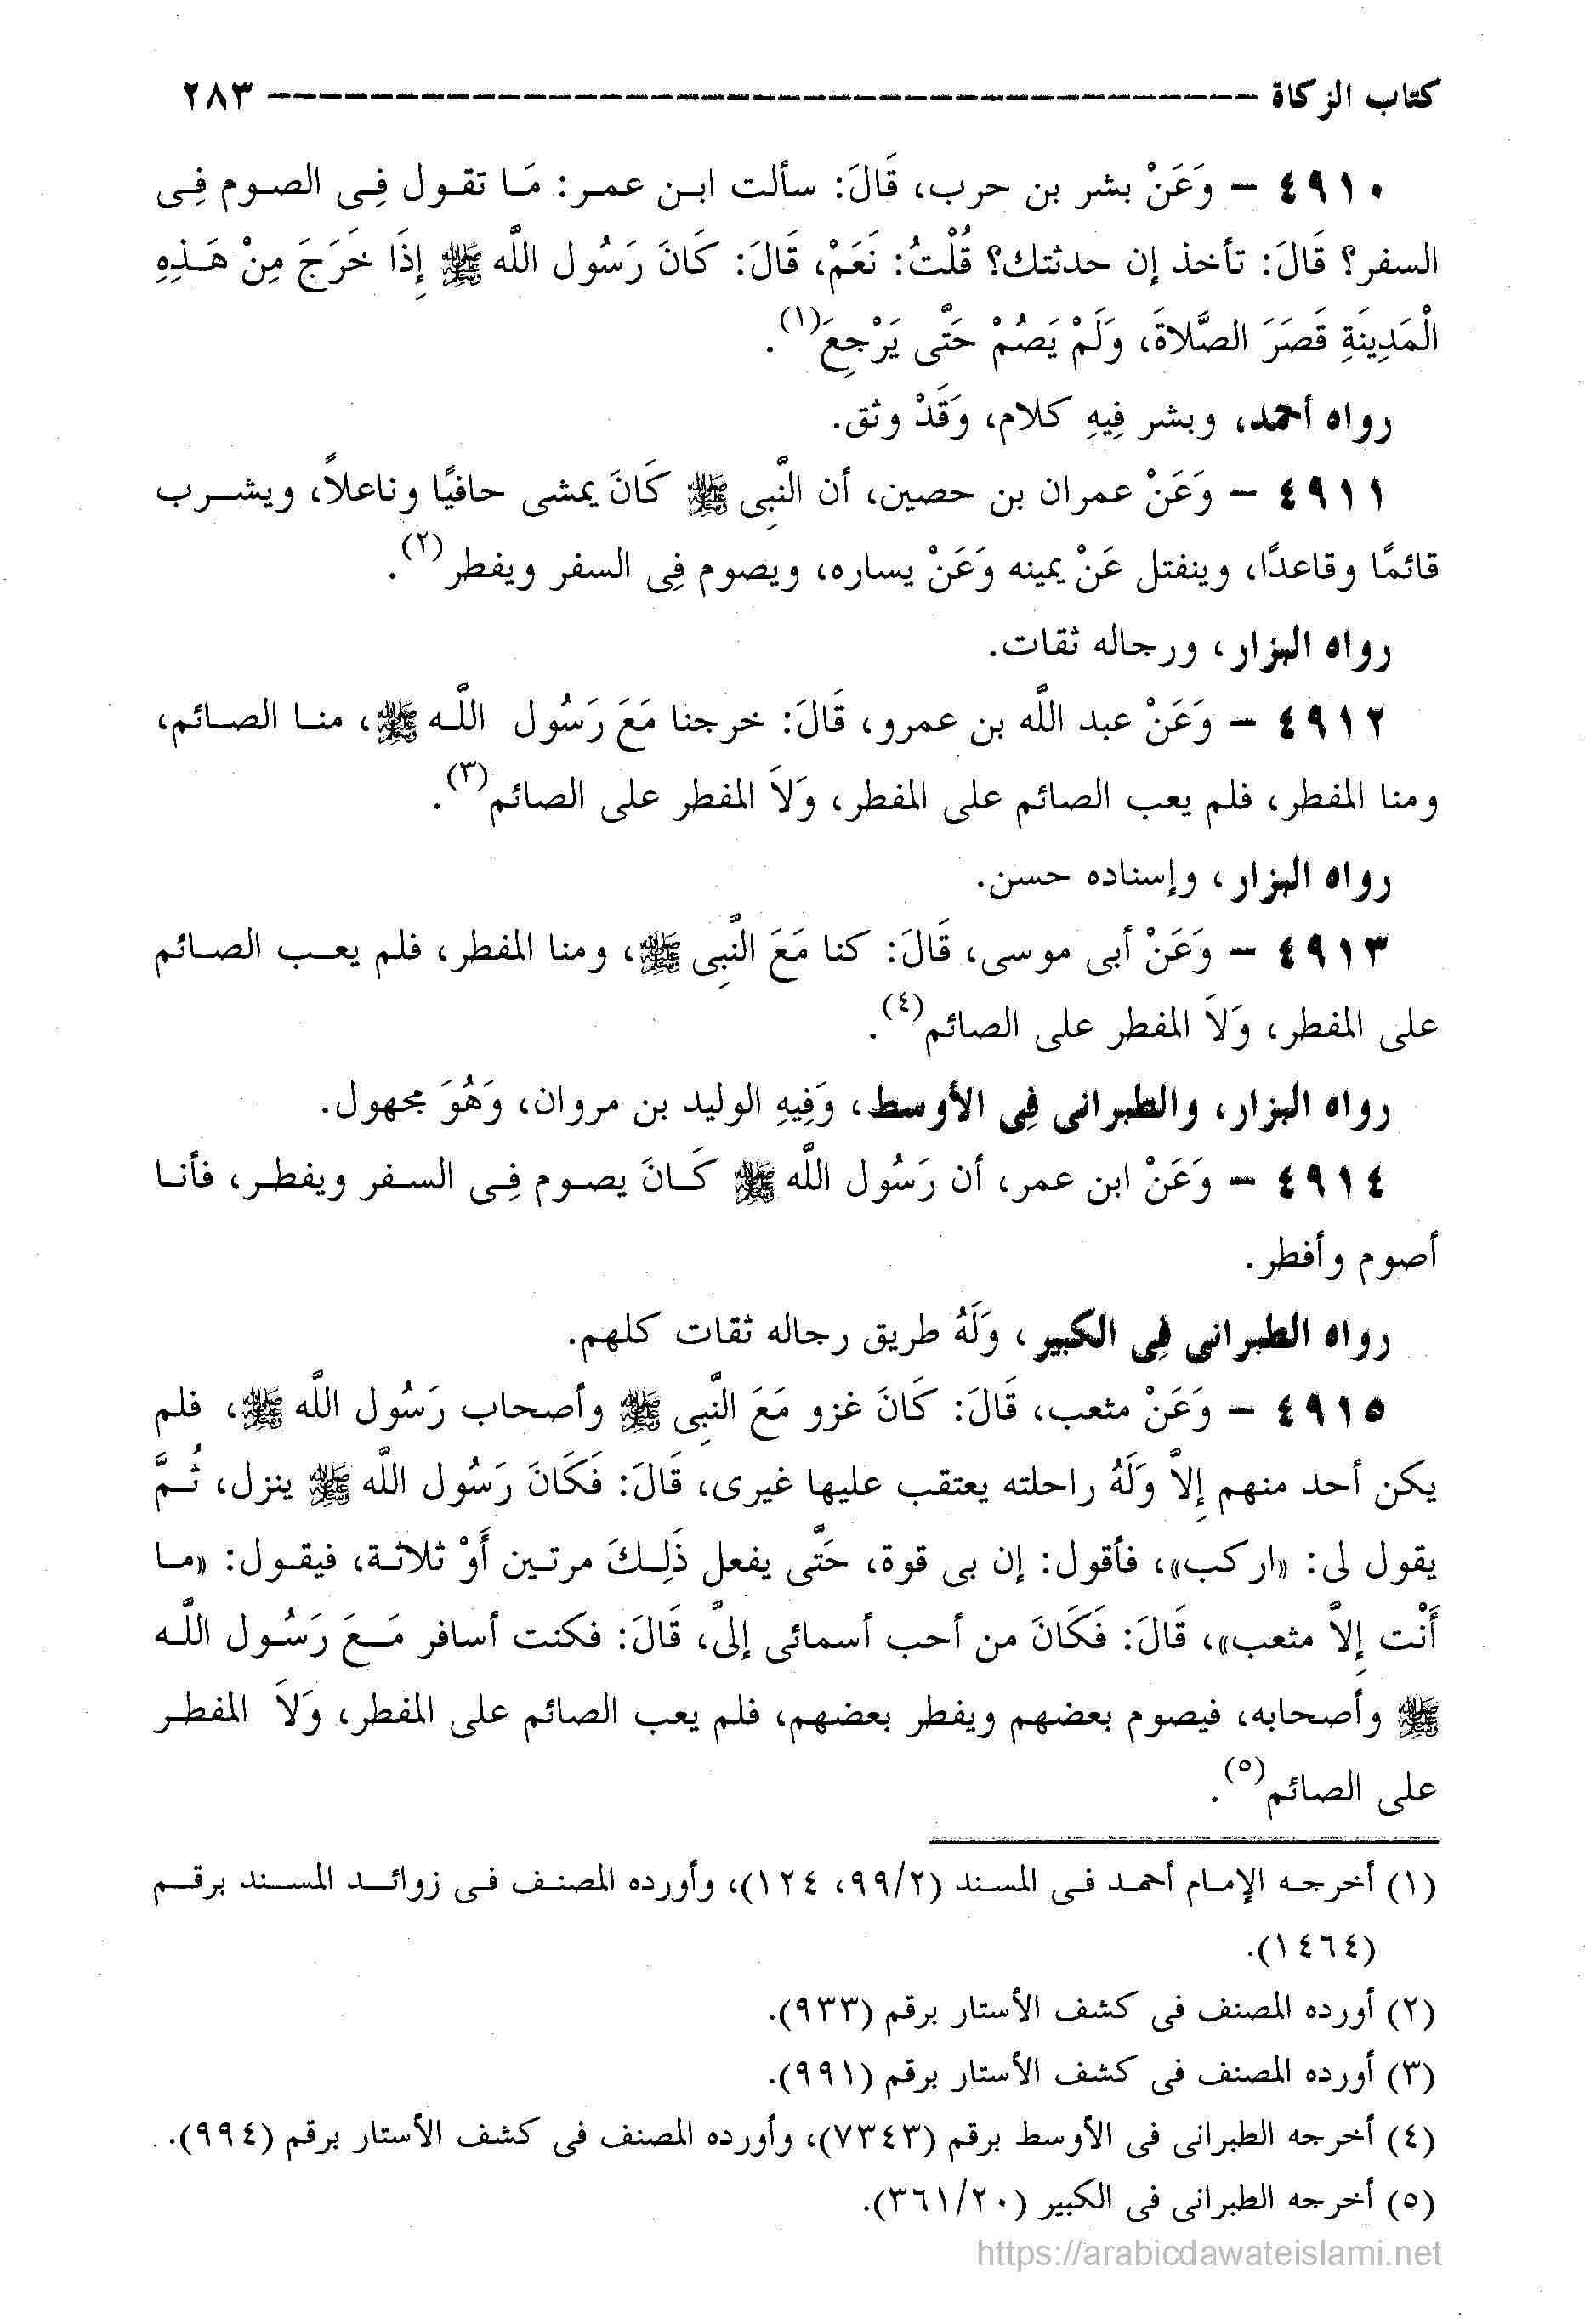 كتاب الزكاة ----------------------------------------- ٢٨٣
٤٩١٠ - وَعَنْ بشر بن حرب، قَالَ: سألت ابن عمر: مَا تقول فِى الصوم فِى
السفر؟ قَالَ: تأخذ إن حدثتك؟ قُلْتُ: نَعَمْ، قَالَ: كَانَ رَسُول اللَّه ﷺ إِذَا خَرَجَ مِنْ هَذِهِ
الْمَدِينَةِ قَصَرَ الصَّلاةَ، وَلَمْ يَصُمْ حَتَّى يَرْجِعَ(١).
رواه أحمد، وبشر فِيهِ كلام، وَقَدْ وثق.
٤٩١١ - وَعَنْ عمران بن حصين، أن النَّبِى ﷺ كَانَ يمشى حافيًا وناعلاً، ويشرب
قائمًا وقاعدًا، وينفتل عَنْ يمينه وَعَنْ يساره، ويصوم فِى السفر ويفطر(٢).
رواه البزار، ورجاله ثقات.
٤٩١٢ - وَعَنْ عبد اللَّه بن عمرو، قَالَ: خرجنا مَعَ رَسُول اللَّه ﷺ، منا الصائم،
ومنا المفطر، فلم يعب الصائم على المفطر، وَلاَ المفطر على الصائم(٣).
رواه البزار، وإسناده حسن.
٤٩١٣ - وَعَنْ أبى موسى، قَالَ: كنا مَعَ النَّبِى ﷺ، ومنا المفطر، فلم يعب الصائم
على المفطر، وَلاَ المفطر على الصائم(٤).
رواه البزار، والطبرانى فِى الأوسط، وَفِيهِ الوليد بن مروان، وَهُوَ مجهول.
٤٩١٤ - وَعَنْ ابن عمر، أن رَسُول اللَّه ﷺ كَانَ يصوم فِى السفر ويفطر، فأنا
أصوم وأفطر.
رواه الطبرانى فِى الكبير، وَلَهُ طريق رجاله ثقات كلهم.
٤٩١٥ - وَعَنْ مثعب، قَالَ: كَانَ غزو مَعَ النَّبِى ﷺ وأصحاب رَسُول اللَّه ﷺ، فلم
يكن أحد منهم إِلاَّ وَلَهُ راحلته يعتقب عليها غيرى، قَالَ: فَكَانَ رَسُول اللَّه ﷺ ينزل، ثُمَّ
يقول لى: «اركب»، فأقول: إن بى قوة، حَتَّى يفعل ذَلِكَ مرتين أَوْ ثلاثة، فيقول: «ما
أَنْت إِلاَّ مثعب»، قَالَ: فَكَانَ من أحب أسمائى إلىَّ، قَالَ: فكنت أسافر مَعَ رَسُول اللَّه
ﷺ وأصحابه، فيصوم بعضهم ويفطر بعضهم، فلم يعب الصائم على المفطر، وَلاَ المفطر
على الصائم(٥).
(١) أخرجه الإمام أحمد فى المسند (٩٩/٢، ١٢٤)، وأورده المصنف فى زوائد المسند برقم
(١٤٦٤).
(٢) أورده المصنف فى كشف الأستار برقم (٩٣٣).
(٣) أورده المصنف فى كشف الأستار برقم (٩٩١).
(٤) أخرجه الطبرانى فى الأوسط برقم (٧٣٤٣)، وأورده المصنف فى كشف الأستار برقم (٩٩٤).
(٥) أخرجه الطبرانى فى الكبير (٣٦١/٢٠).
https://arabicdawateislami.net